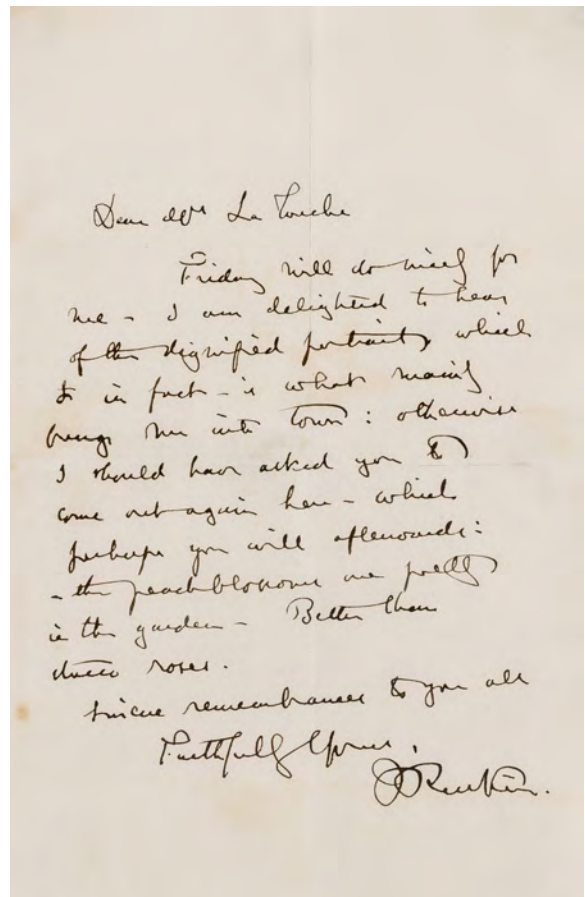 Dear Mrs La Touche
Friday will do nicely for
me - I am delighted to hear
of the dignified portraits, which
in fact - is what mainly
brings me into town: otherwise
I should have asked you to
come out again here - which
perhaps you will afterwards:
- the peachblossoms are pretty
in the garden - Better than
stucco roses.
Sincere remembrances to you all
Faithfully Yours,
JRuskin.